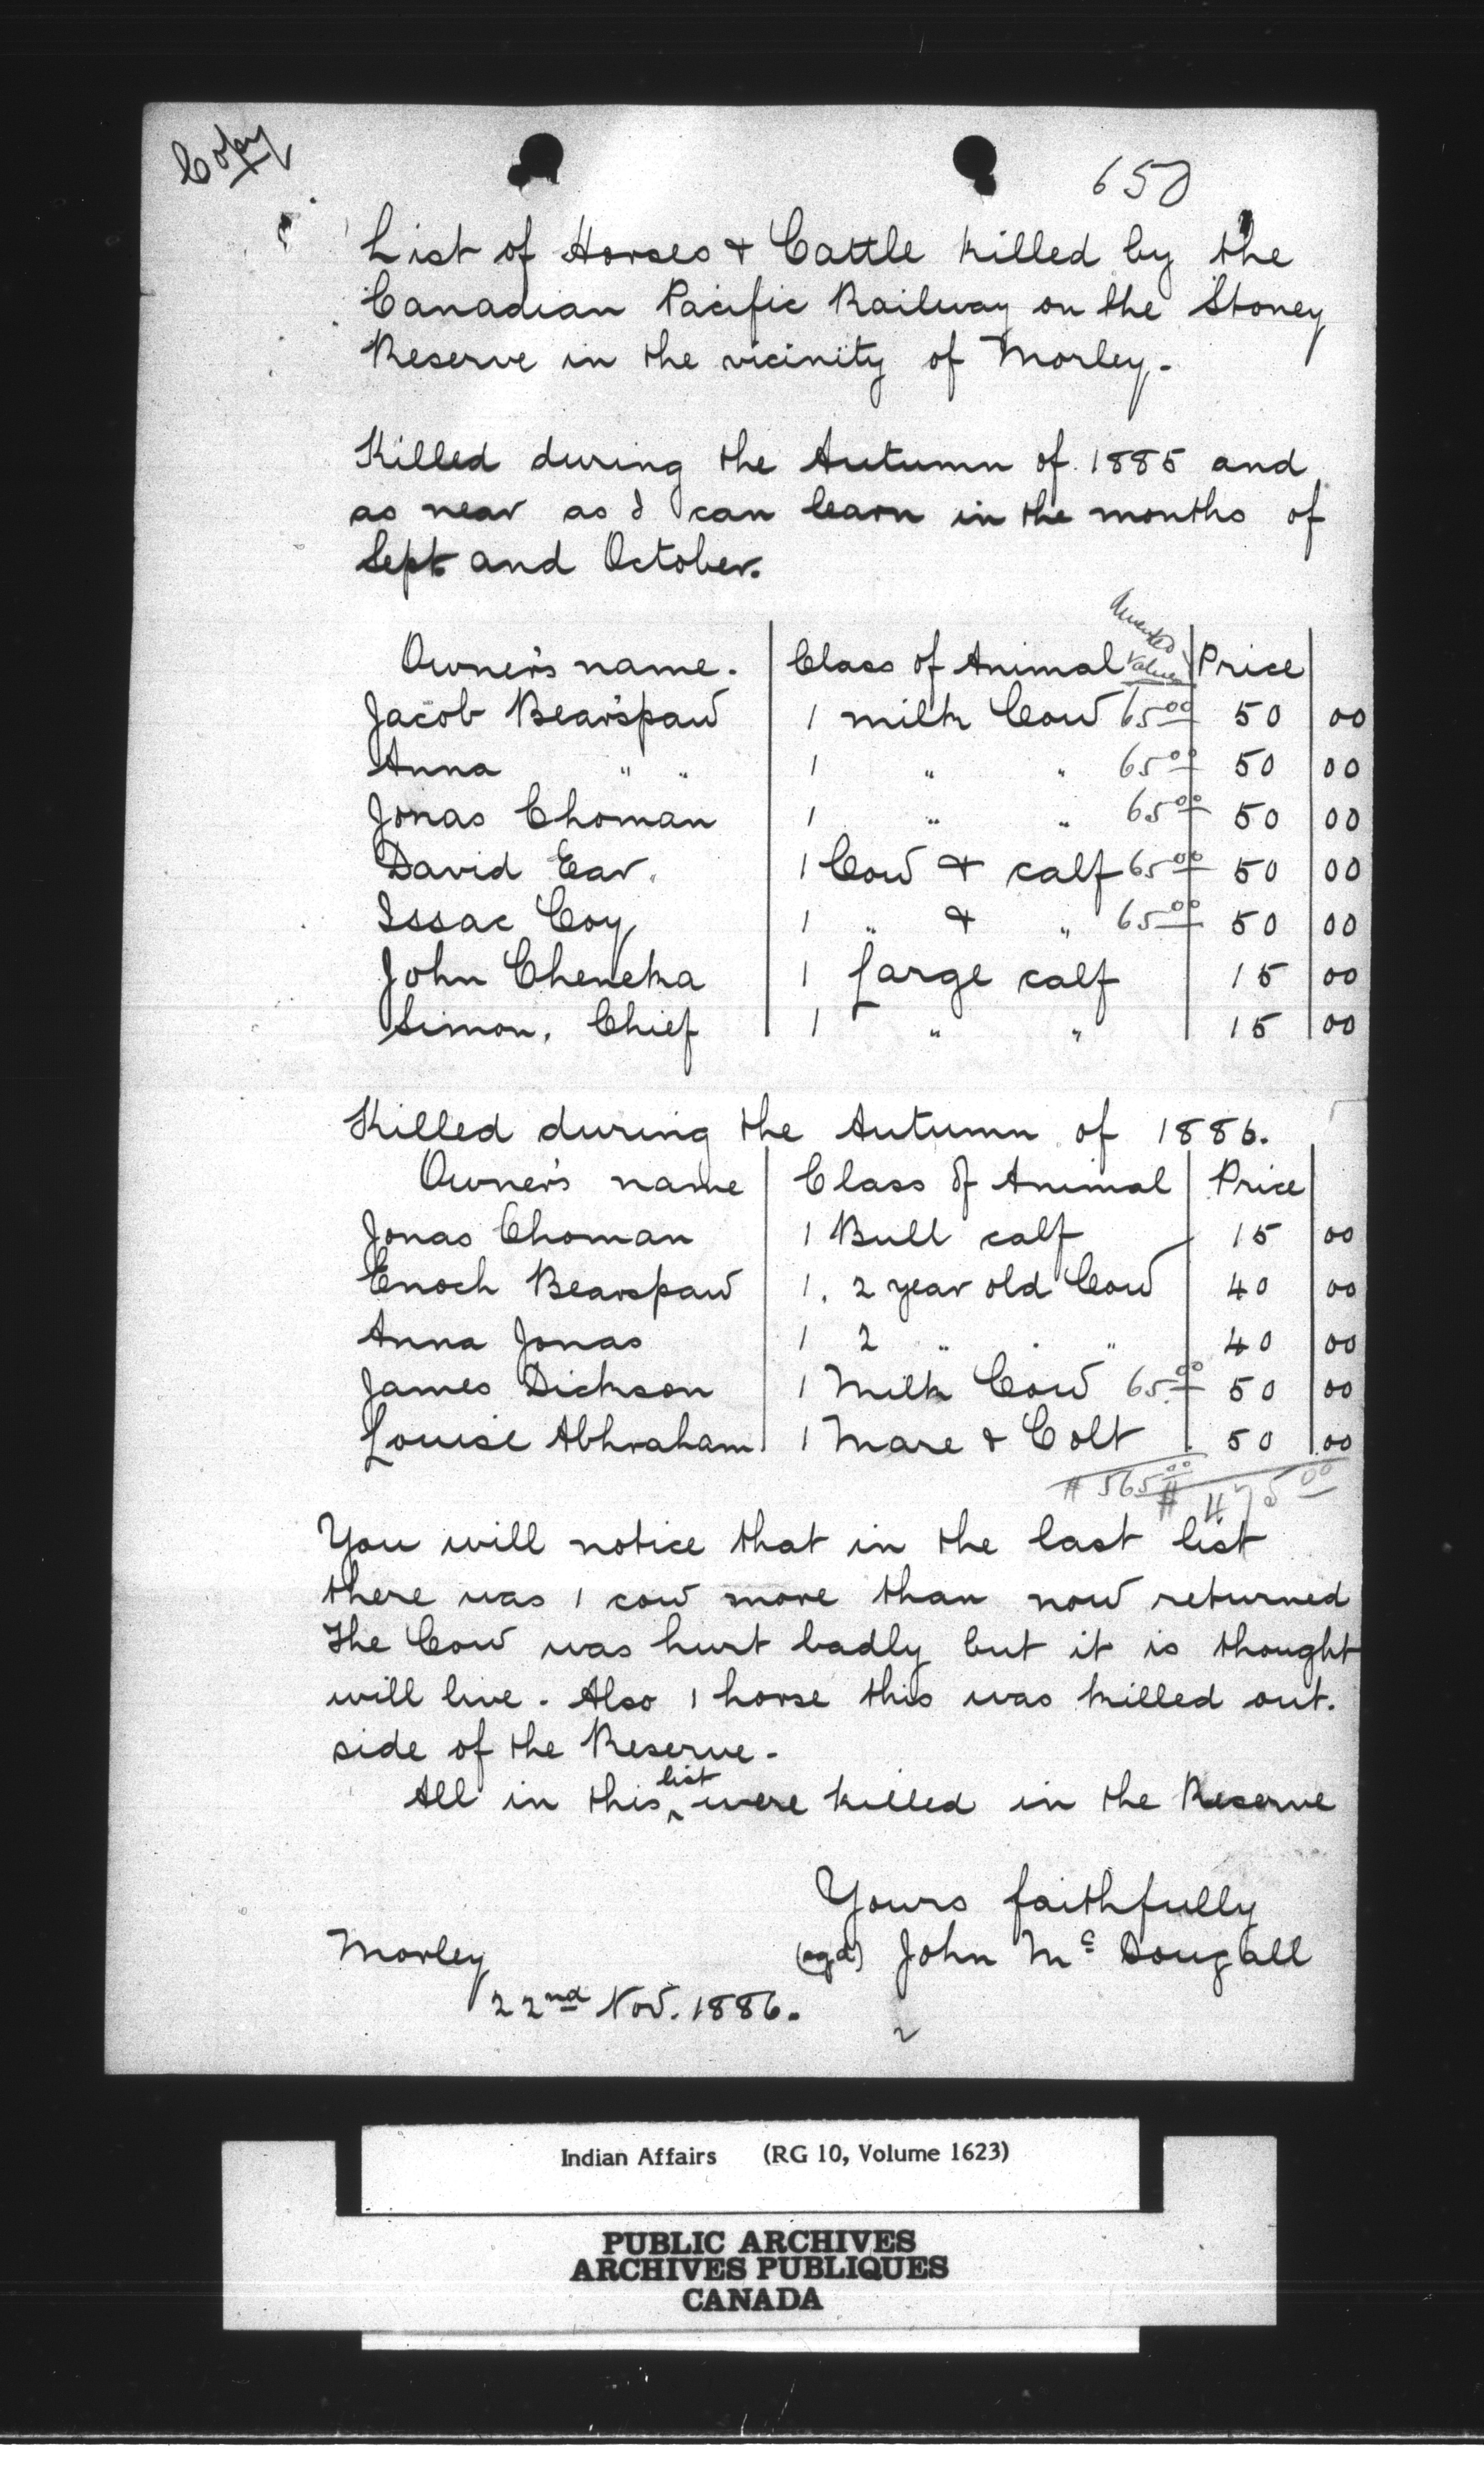 Copy
650
List of Horses & Cattle killed by the
Canadian Pacific Railway on the Stoney
Reserve in the vicinity of Morley.
Killed during the Autumn of 1885 and
as near as I can learn in the months of
Sept and October.
Owner's name. Class of Animal Amended Values Price
Jacob Bear'spaw 1 milk Cow 65 00 50 00
Anna " " 1 " " 65 00 50 00
Jonas Choman 1 " " 65 00 50 00
David Ear. 1 Cow & calf 65 00 50 00
Issac Coy 1 " & " 65 00 50 00
John Cheneka 1 Large calf 15 00
Simon, Chief 1 " " 15 00
Killed during the Autumn of 1886.
Owner's name Class of Animal Price
Jonas Choman 1 Bull calf 15 00
Enoch Bearspaw 1. 2 year old Cow 40 00
Anna Jonas 1 2 " " " 40 00
James Dickson 1 Milk Cow 65 00 50 00
Louise Abhraham 1 Mare & Colt 50 00
# 565 00 # 475 00
You will notice that in the last list
there was 1 cow more than now returned
The Cow was hurt badly but it is thought
will live. Also 1 horse this was killed out.
side of the Reserve.
All in this list were killed in the Reserve
Yours faithfully
Morley (sgd) John Mc Dougall
22nd Nov. 1886.
Indian Affairs (RG 10, Volume 1623)
PUBLIC ARCHIVES
ARCHIVES PUBLIQUES
CANADA